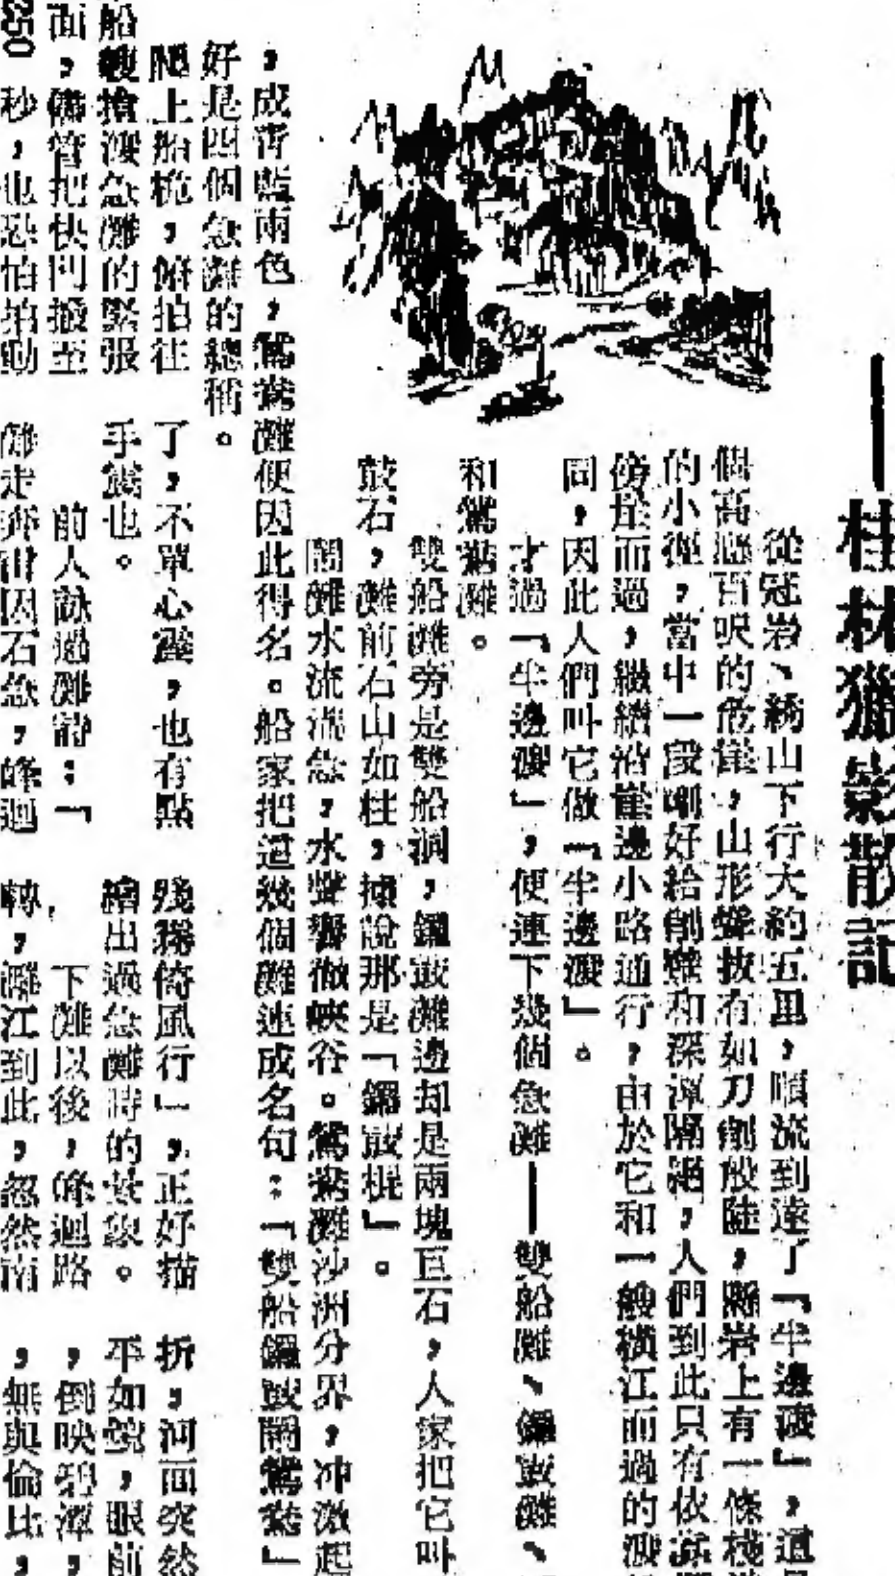 ——桂林獵影散記
從冠岩、綉山下行大約五里，順流到達了「半邊渡」，這是
個高懸百呎的危崖，山形聳拔有如刀削般陡，懸岩上有一條棧道
的小徑，當中一段剛好給削壁和深潭隔絕，人們到此只有依靠
傍崖而過，繼續沿崖邊小路通行，由於它和一般橫江而過的渡
同，因此人們叫它做「半邊渡」。
才過「半邊渡」，便連下幾個急灘——雙船灘、鑼鼓灘、
和鴛鴦灘。
雙船灘旁是雙船洞，鑼鼓灘邊却是兩塊巨石，人家把它叫
鼓石，灘前石山如柱，據說那是「鑼鼓棍」。
閙灘水流湍急，水聲響徹峽谷。鴛鴦灘沙洲分界，冲激起
，成青藍兩色，鴛鴦灘便因此得名。船家把這幾個灘連成名句：「雙船鑼鼓閙鴛鴦」
好是四個急灘的總稱。
爬上船桅，俯拍往
船艘搶渡急灘的緊張
面，儘管把快門撥至
250 秒，也恐怕拍動
了，不單心震，也有點
手震也。
前人詠過灘詩：「
灘走奔雷因石急，峰迴
殘霧倚風行」，正好描
繪出過急灘時的景象。
下灘以後，峰迴路
轉，灕江到此，忽然南
折，河面突然
平如鏡，眼前
，倒映碧潭，
，無與倫比，